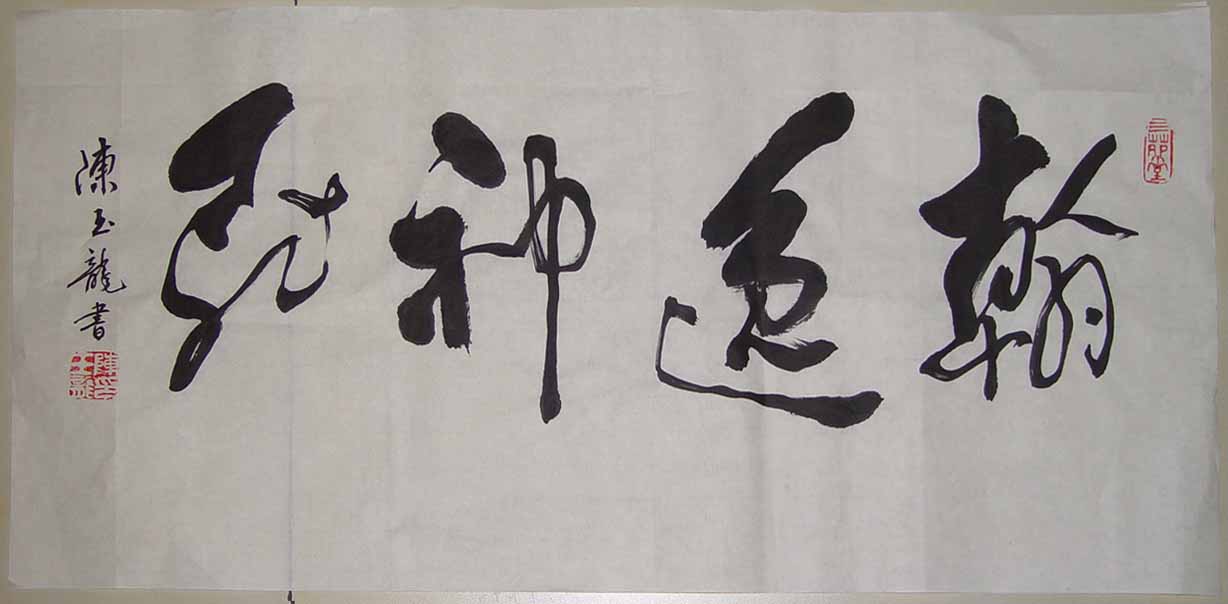 翰逸神飛
陳玉龍書